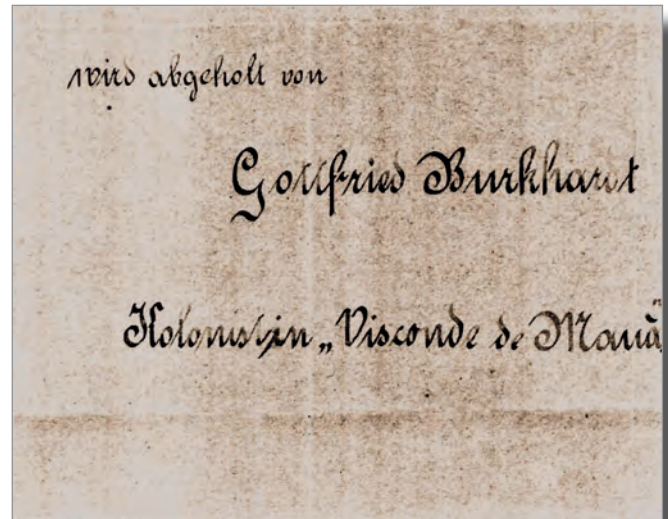 wird abgeholt von
Gottfried Burkhart
Kolonist in „Visconde de Mauá"